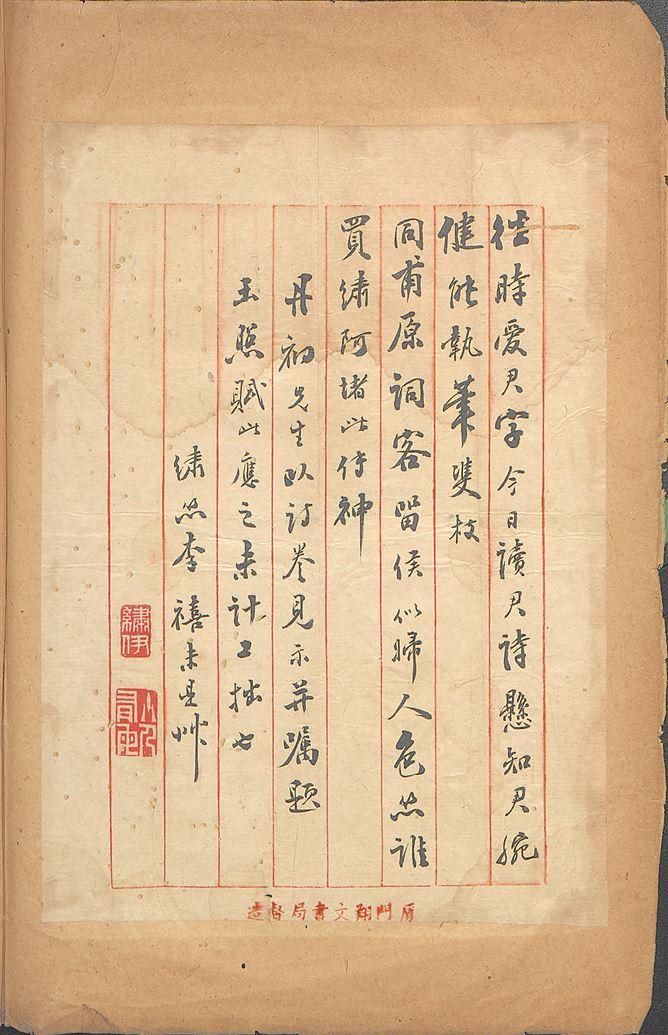 往時愛君字今日讀君詩懸知君腕
健能執筆雙枝
同甫原詞客留侯似婦人色絲誰
買繡阿堵此傳神
丹初先生以詩卷見示并囑題
玉照賦此應之未計工拙也
繡絲李禧未是艸
繡伊
廈門翔文書局督造